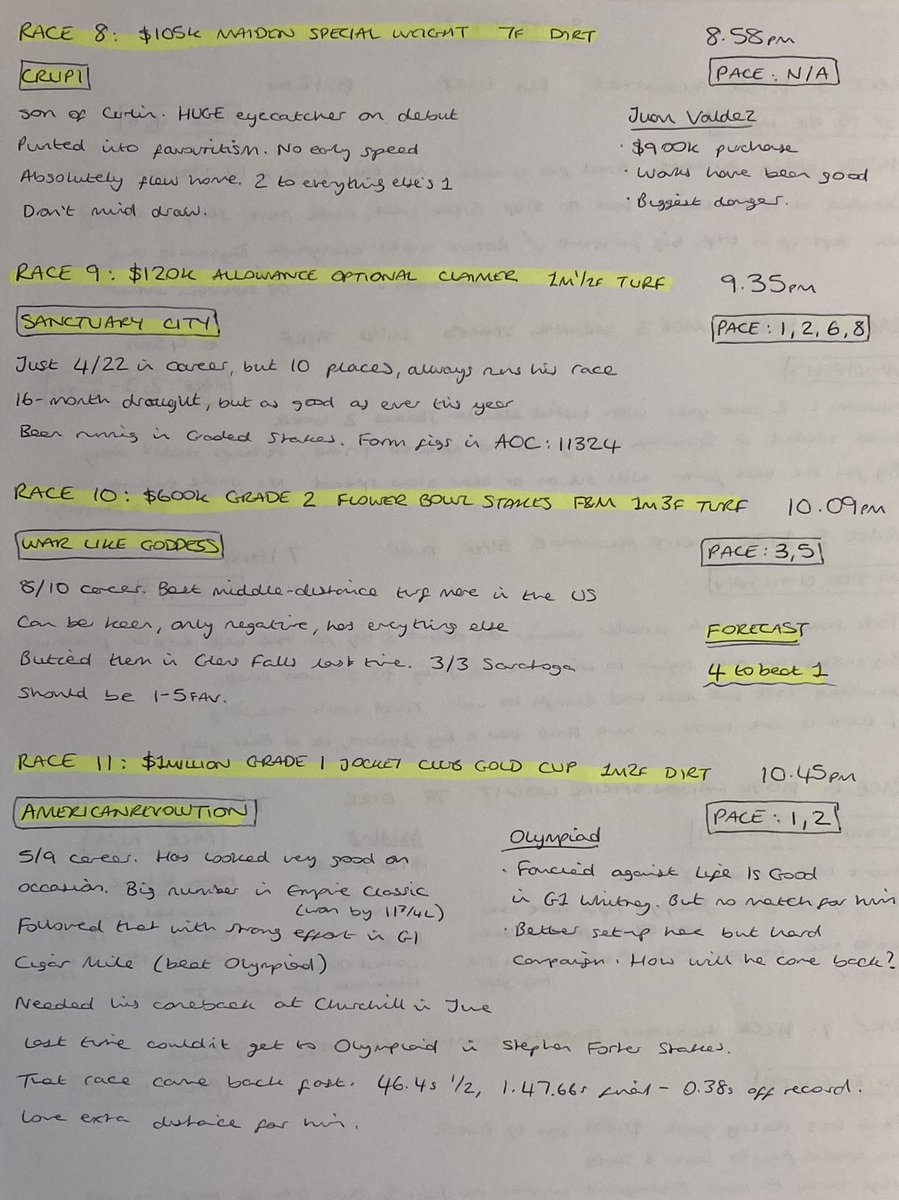 RACE 8: $105K MAIDEN SPECIAL WEIGHT 7F DIRT 8.58PM
CRUPI
PACE: N/A
Son of Curlin. HUGE eyecatcher on debut
Punted into favouritism. No early speed
Absolutely flew home. 2 to everything else's 1
Don't mid draw.
Juan Valdez
· $900k purchase
· Works have been good
· Biggest danger.
RACE 9: $120K ALLOWANCE OPTIONAL CLAIMER 1M1/2F TURF 9.35PM
SANCTUARY CITY
PACE: 1, 2, 6, 8
Just 4/22 in career, but 10 places, always runs his race
16-month drought, but as good as ever this year
Been running in Graded Stakes. Form figs in AOC: 11324
RACE 10: $600K GRADE 2 FLOWER BOWL STAKES F&M 1M3F TURF 10.09PM
WAR LIKE GODDESS
PACE: 3, 5
8/10 career. Best middle-distance turf mare in the US
Can be keen, only negative, has everything else
Butied them in Glens Falls last time. 3/3 Saratoga
Should be 1-5 FAV.
FORECAST
4 to beat 1
RACE 11: $1MILLION GRADE 1 JOCKEY CLUB GOLD CUP 1M2F DIRT 10.45PM
AMERICANREVOLUTION
PACE: 1, 2
5/9 career. Has looked very good on
occasion. Big number in Empire Classic
(won by 11 3/4L)
Followed that with strong effort in G1
Cigar Mile (beat Olympiad)
Olympiad
· Fancied against Life Is Good
in G1 Whitney. But no match for him
· Better set-up here but hard
campaign. How will he come back?
Needed his comeback at Churchill in June
Last time couldn't get to Olympiad in Stephen Foster Stakes.
That race came back fast. 46.4s 1/2, 1.47.66s final - 0.38s off record.
Love extra distance for him.